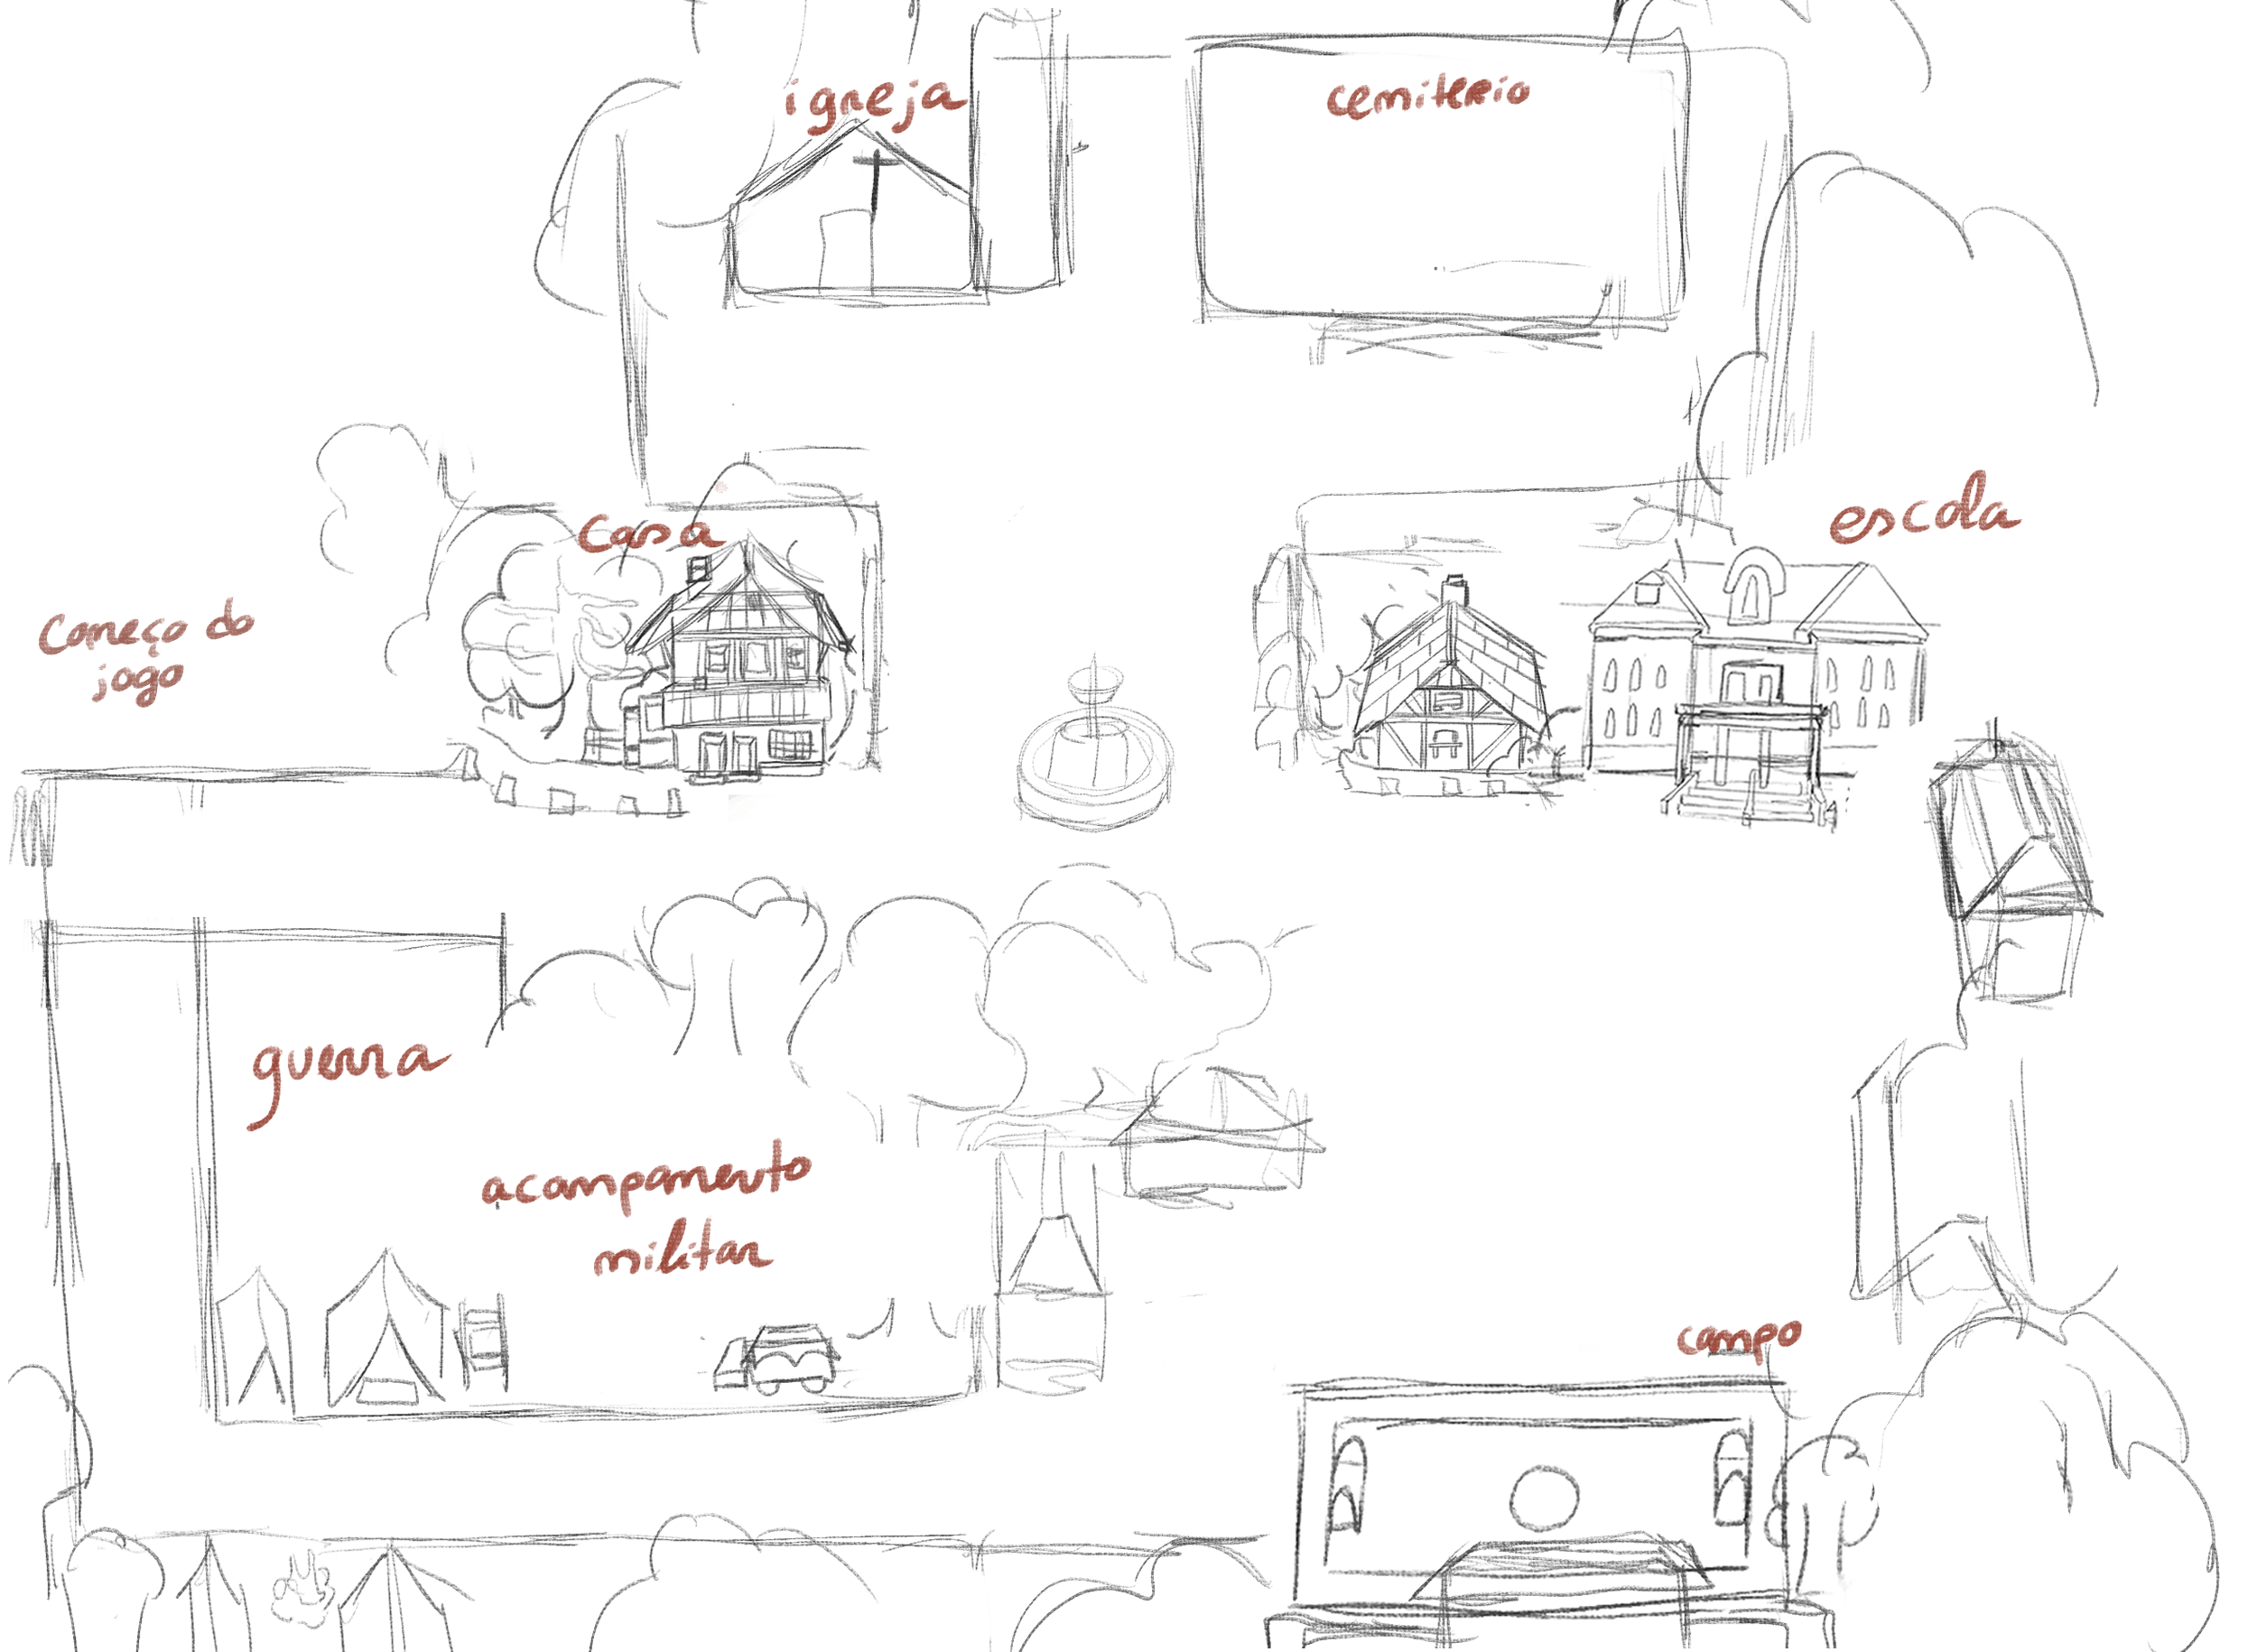 igreja
cemiterio
casa
escola
Começo do
jogo
guerra
acampamento
militar
campo